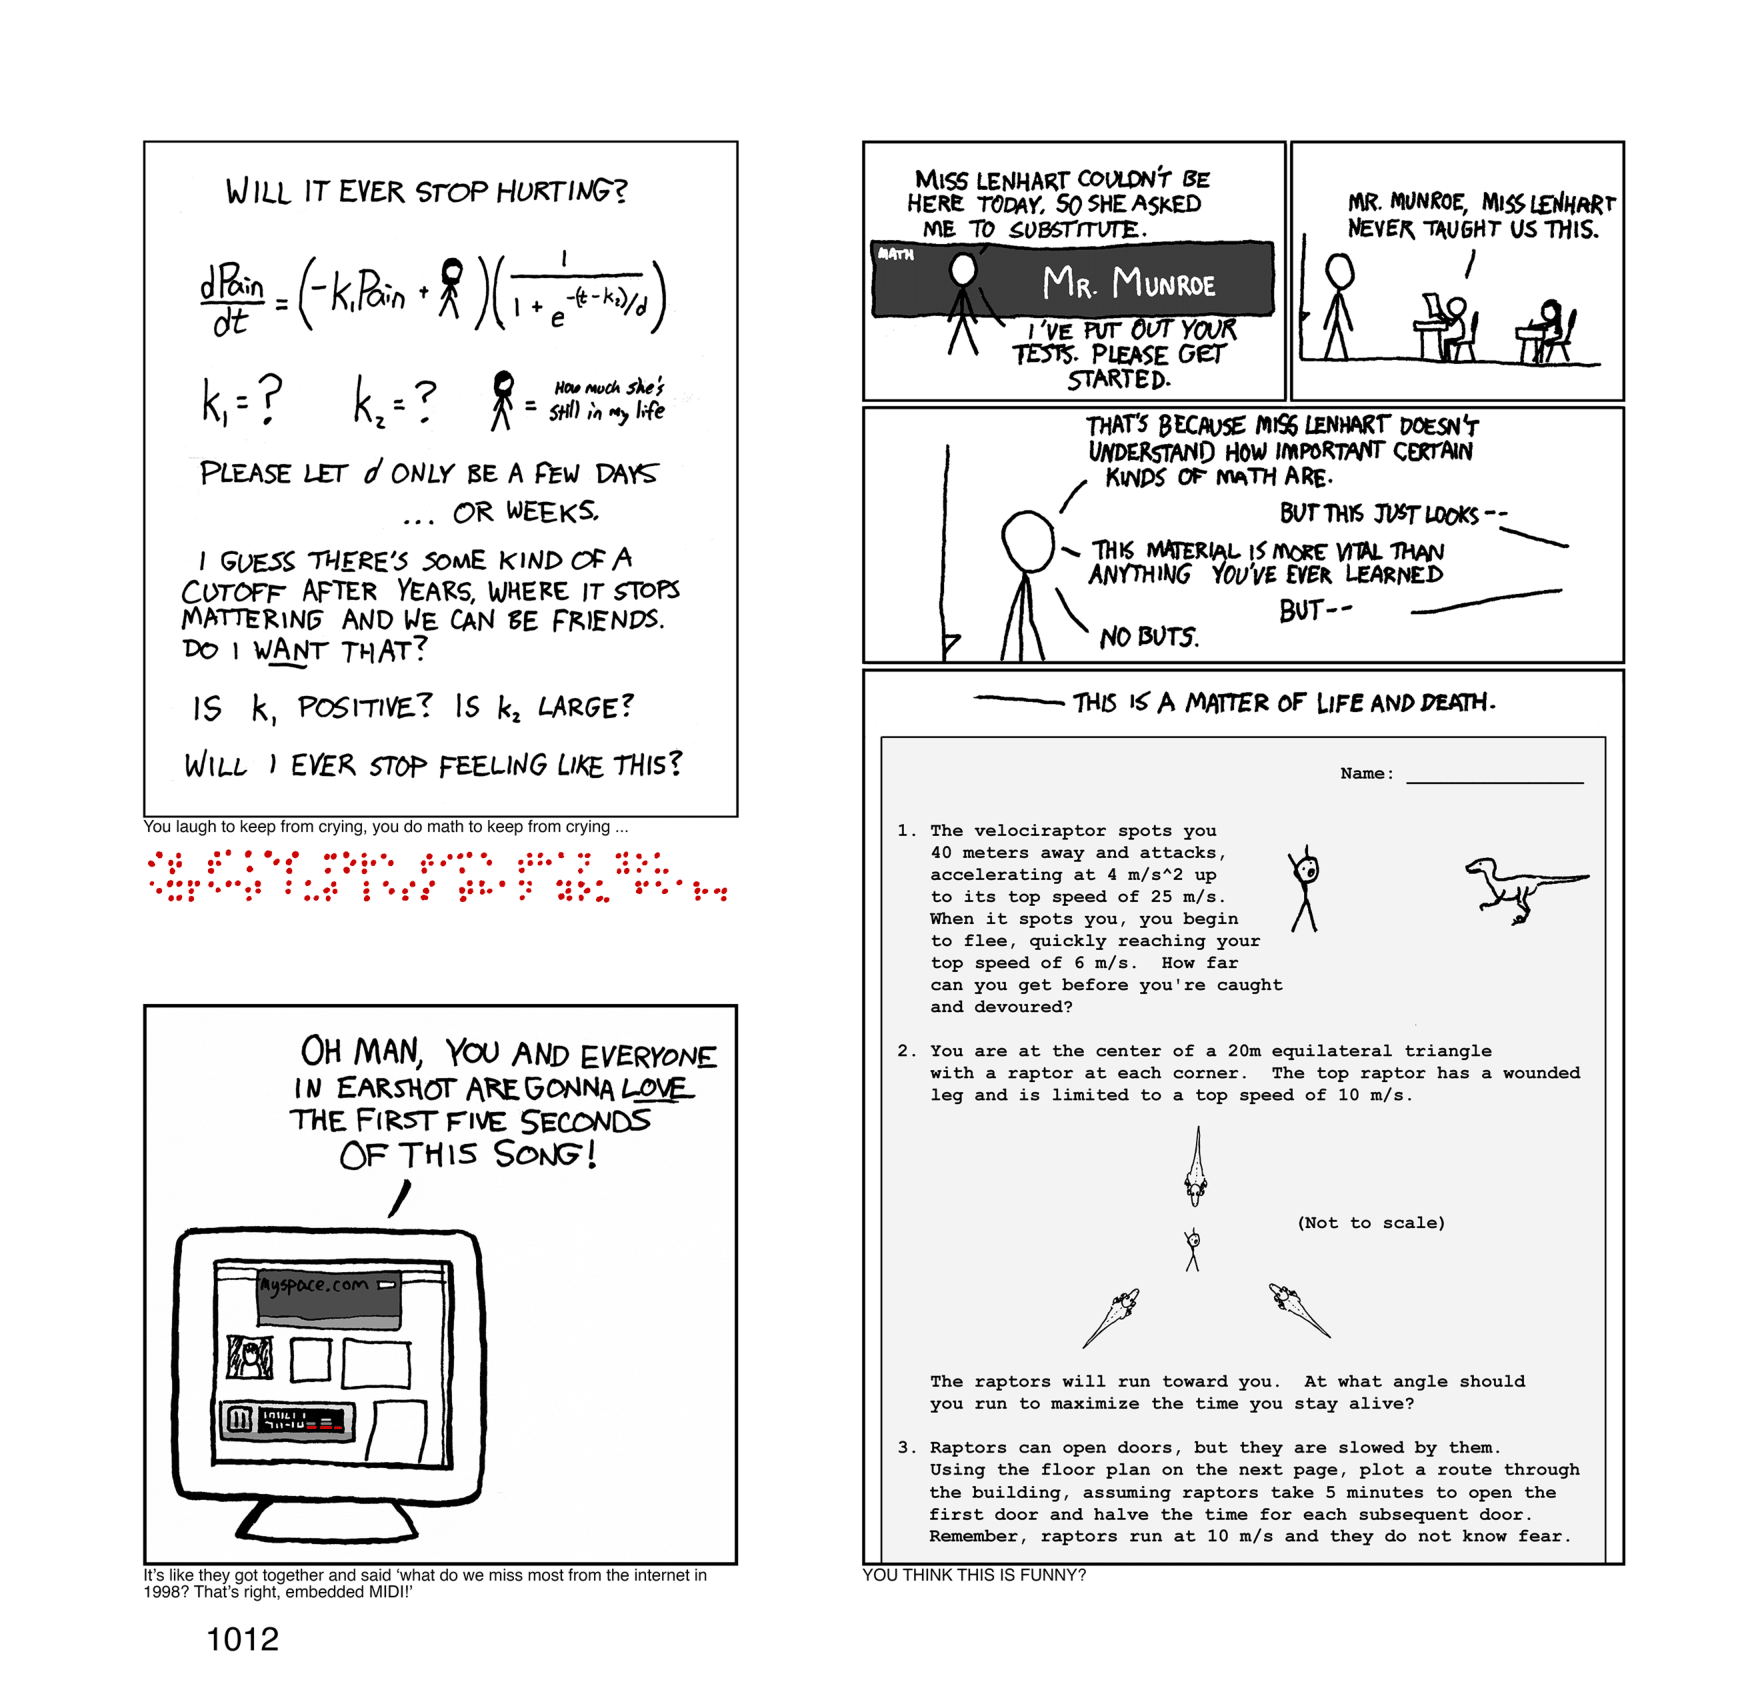 WILL IT EVER STOP HURTING?
dPain/dt = (-k₁Pain + )(1/(1 + e^(-(t-k₂)/d)))
k₁ = ? k₂ = ? = How much she's
still in my life
PLEASE LET d ONLY BE A FEW DAYS
... OR WEEKS.
I GUESS THERE'S SOME KIND OF A
CUTOFF AFTER YEARS, WHERE IT STOPS
MATTERING AND WE CAN BE FRIENDS.
DO I WANT THAT?
IS k₁ POSITIVE? IS k₂ LARGE?
WILL I EVER STOP FEELING LIKE THIS?
You laugh to keep from crying, you do math to keep from crying ...
OH MAN, YOU AND EVERYONE
IN EARSHOT ARE GONNA LOVE
THE FIRST FIVE SECONDS
OF THIS SONG!
myspace.com
It's like they got together and said ‘what do we miss most from the internet in
1998? That's right, embedded MIDI!’
1012
MISS LENHART COULDN'T BE
HERE TODAY, SO SHE ASKED
ME TO SUBSTITUTE.
MATH
MR. MUNROE
I'VE PUT OUT YOUR
TESTS. PLEASE GET
STARTED.
MR. MUNROE, MISS LENHART
NEVER TAUGHT US THIS.
THAT'S BECAUSE MISS LENHART DOESN'T
UNDERSTAND HOW IMPORTANT CERTAIN
KINDS OF MATH ARE.
BUT THIS JUST LOOKS--
THIS MATERIAL IS MORE VITAL THAN
ANYTHING YOU'VE EVER LEARNED
BUT--
NO BUTS.
THIS IS A MATTER OF LIFE AND DEATH.
Name: ________________
1. The velociraptor spots you
40 meters away and attacks,
accelerating at 4 m/s^2 up
to its top speed of 25 m/s.
When it spots you, you begin
to flee, quickly reaching your
top speed of 6 m/s. How far
can you get before you're caught
and devoured?
2. You are at the center of a 20m equilateral triangle
with a raptor at each corner. The top raptor has a wounded
leg and is limited to a top speed of 10 m/s.
(Not to scale)
The raptors will run toward you. At what angle should
you run to maximize the time you stay alive?
3. Raptors can open doors, but they are slowed by them.
Using the floor plan on the next page, plot a route through
the building, assuming raptors take 5 minutes to open the
first door and halve the time for each subsequent door.
Remember, raptors run at 10 m/s and they do not know fear.
YOU THINK THIS IS FUNNY?